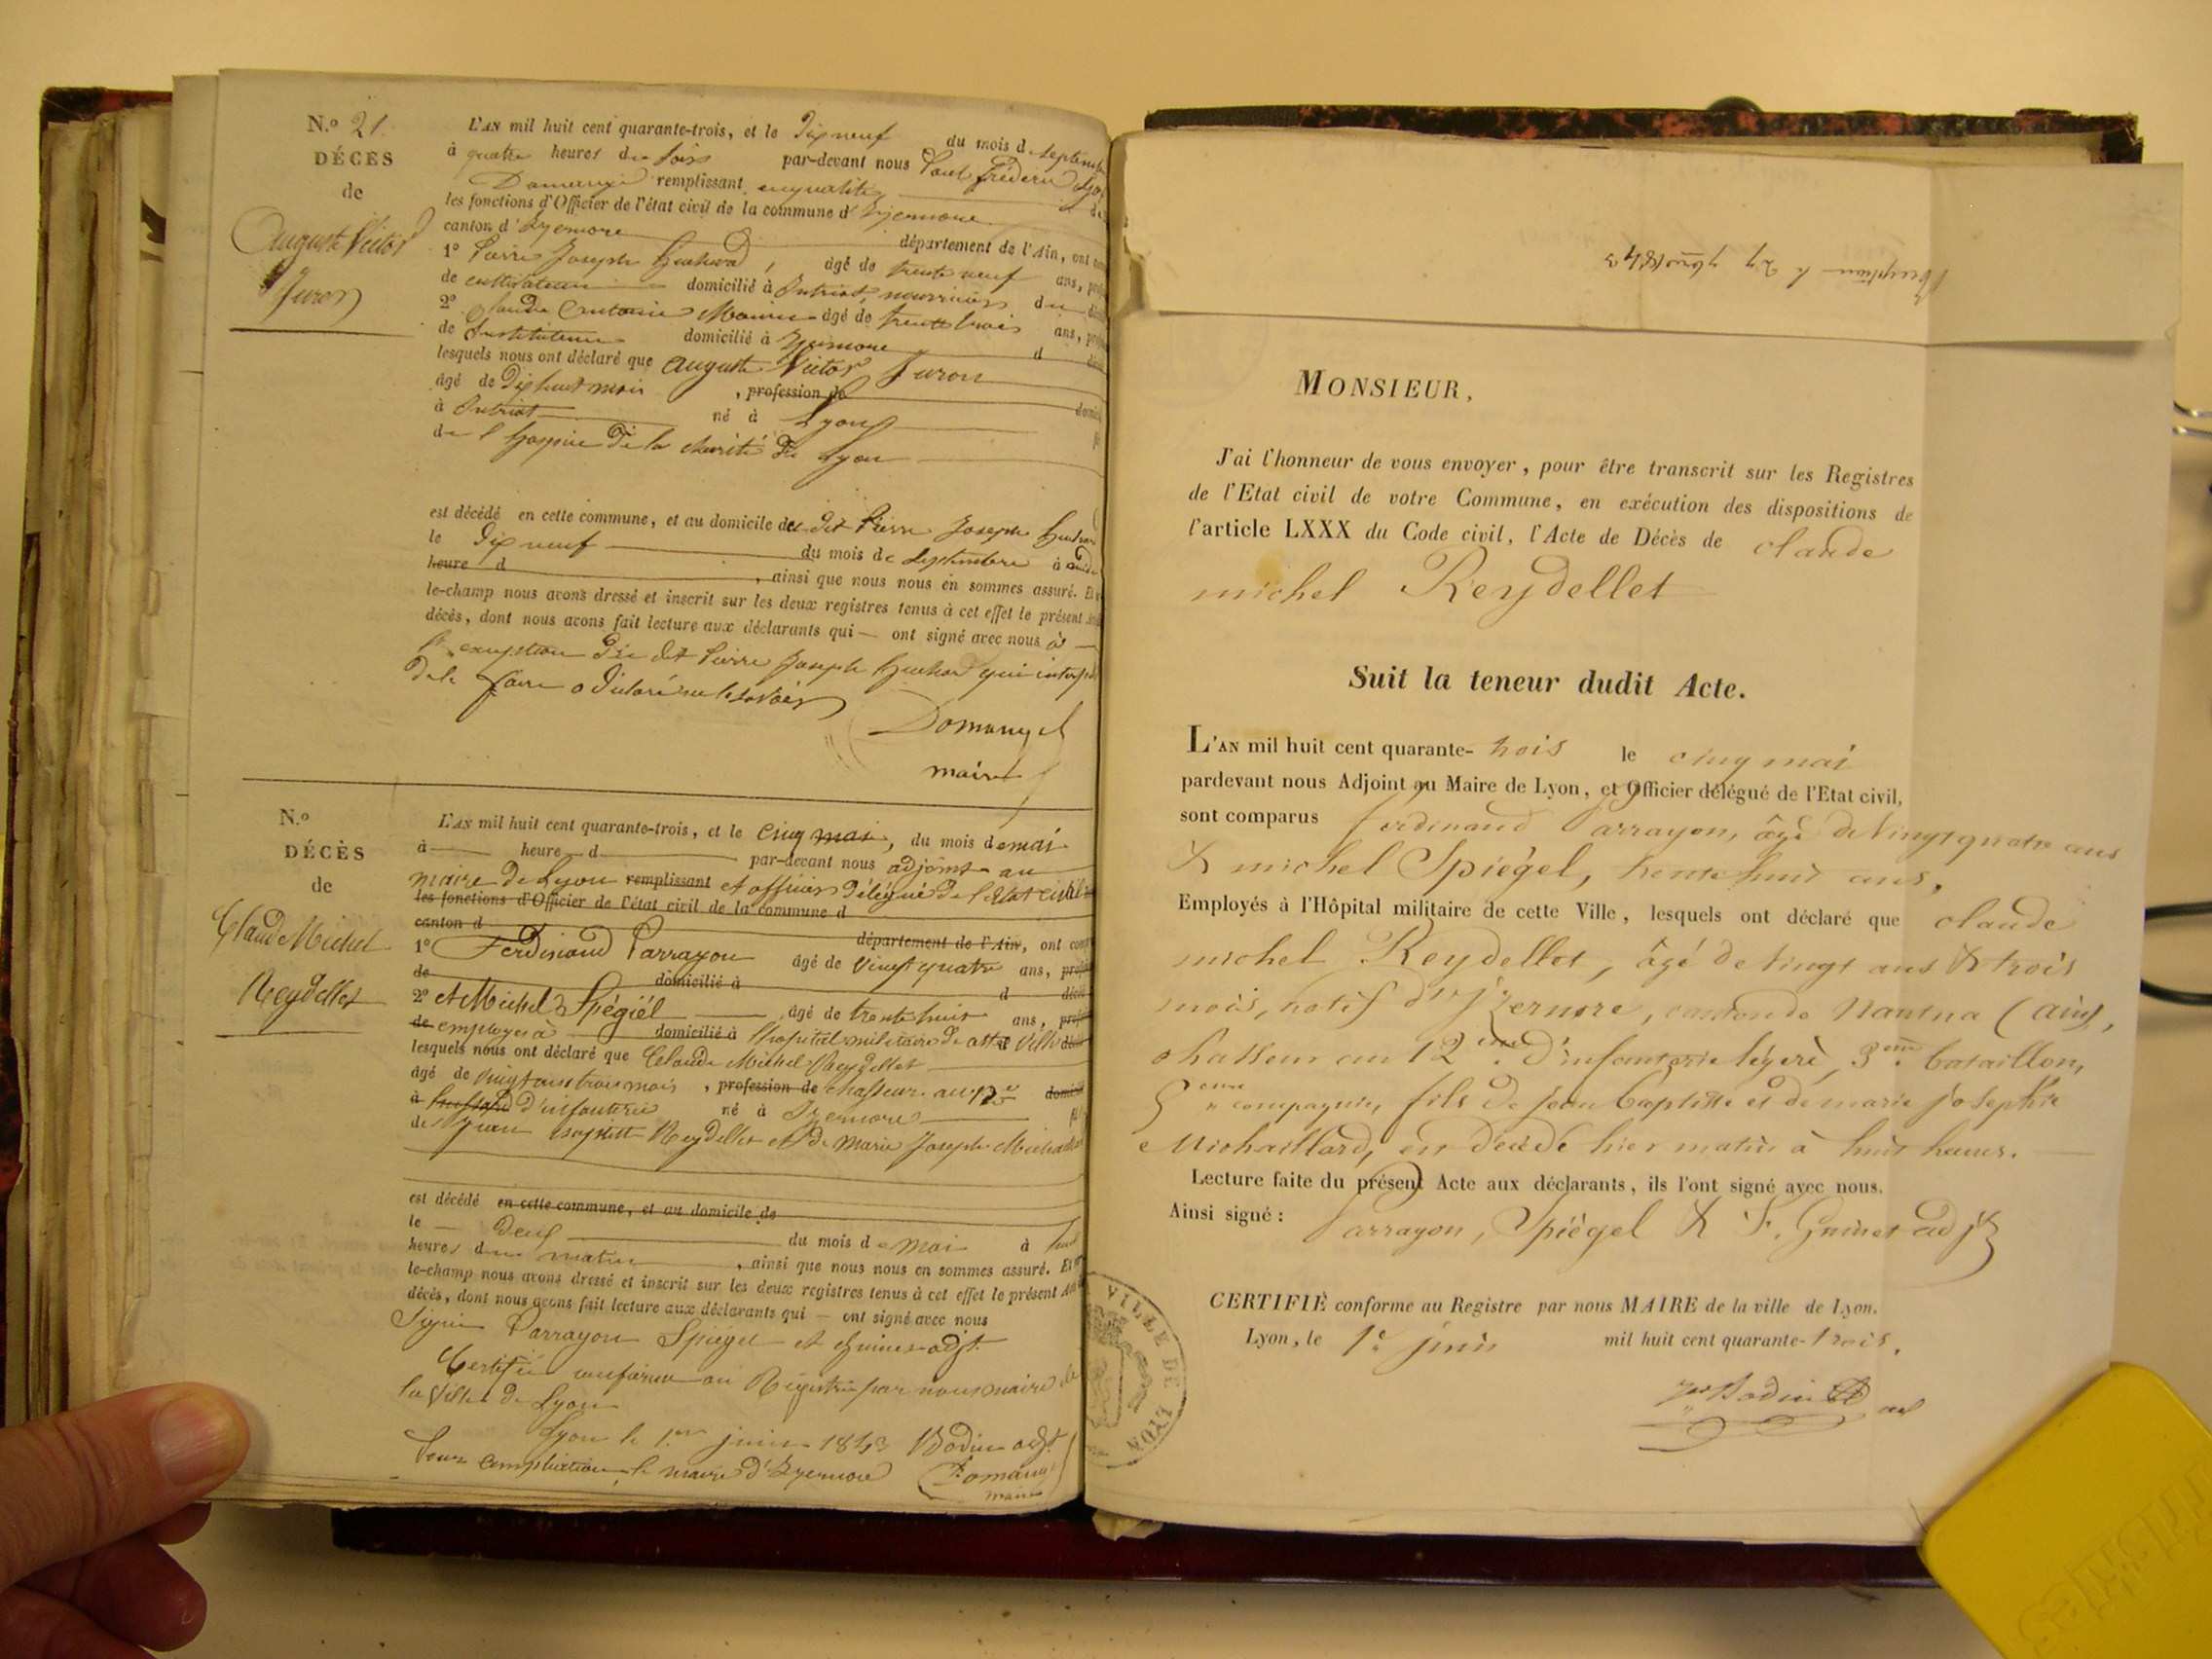 N.o 21.
DÉCÈS
de
Auguste Victor
Juron
L'AN mil huit cent quarante-trois, et le dix neuf du mois de septembre
à quatre heures du soir par-devant nous Paul Fréderic
Domange remplissant en qualité de
les fonctions d'Officier de l'état civil de la commune d'Izernore
canton d'Izernore département de l'Ain, ont
1º Pierre Joseph , âgé de trente neuf ans,
de cultivateur domicilié à Intriat, nourricier du
2º Claude Antoine âgé de trente trois ans,
de Instituteur domicilié à Izernore d
lesquels nous ont déclaré que Auguste Victor Juron
âgé de dix huit mois , profession de
à Intriat né à Lyon
de l'hospice de la charité de Lyon
est décédé en cette commune, et au domicile du dit Pierre Joseph
le dix neuf du mois de septembre à
heure d , ainsi que nous nous en sommes assuré. Et
le-champ nous avons dressé et inscrit sur les deux registres tenus à cet effet le présent
décès, dont nous avons fait lecture aux déclarants qui — ont signé avec nous à
l'exception du dit Pierre Joseph qui
de le faire a déclaré ne le savoir
Domange
maire
N.o
DÉCÈS
de
Claude Michel
Reydellet
L'AN mil huit cent quarante-trois, et le cinq mai, du mois de mai
à heure d par-devant nous adjoint au
maire de Lyon remplissant et officier délégué de l'état civil
les fonctions d'Officier de l'état civil de la commune d
canton d département de l'Ain, ont
1º Ferdinand Parrayon âgé de vingt quatre ans,
de domicilié à d
2º et Michel Spégiél âgé de trente huit ans,
de employés à domicilié à l'hopital militaire de cette ville
lesquels nous ont déclaré que Claude Michel Reydellet
âgé de vingt ans trois mois , profession de chasseur au 12e
à d'infanterie né à Izernore
de Jean Baptiste Reydellet et de Marie Joseph
est décédé en cette commune, et au domicile de
le — deux du mois de mai à huit
heures du matin , ainsi que nous nous en sommes assuré. Et
le-champ nous avons dressé et inscrit sur les deux registres tenus à cet effet le présent
décès, dont nous avons fait lecture aux déclarants qui — ont signé avec nous
Signé Parrayon Spiégel et Guinet adjt.
Certifié conforme au Registre par nous maire de
la Ville de Lyon
Lyon le 1.er juin 1843 Bodin adjt.
Pour le maire d'Izernore Domange
maire
Réception le 27 7bre 1843
MONSIEUR,
J'ai l'honneur de vous envoyer, pour être transcrit sur les Registres
de l'Etat civil de votre Commune, en exécution des dispositions de
l'article LXXX du Code civil, l'Acte de Décès de claude
michel Reydellet
Suit la teneur dudit Acte.
L'AN mil huit cent quarante- trois le cinq mai
pardevant nous Adjoint au Maire de Lyon, et Officier délégué de l'Etat civil,
sont comparus ferdinand Parrayon, âgé de vingt quatre ans
& michel Spiégel, trente huit ans,
Employés à l'Hôpital militaire de cette Ville, lesquels ont déclaré que claude
michel Reydellet, âgé de vingt ans & trois
mois, natif d'Izernore, canton de Nantua (ain),
chasseur au 12ème d'infanterie légère, 3ème bataillon,
5eme compagnie, fils de jean baptiste et de marie josephte
Michaillard, est décédé hier matin à huit heures.
Lecture faite du présent Acte aux déclarants, ils l'ont signé avec nous.
Ainsi signé : Parrayon, Spiégel & F. Guinet adjt
CERTIFIÉ conforme au Registre par nous MAIRE de la ville de Lyon.
Lyon, le 1er juin mil huit cent quarante- trois.
Bodin
VILLE DE LYON